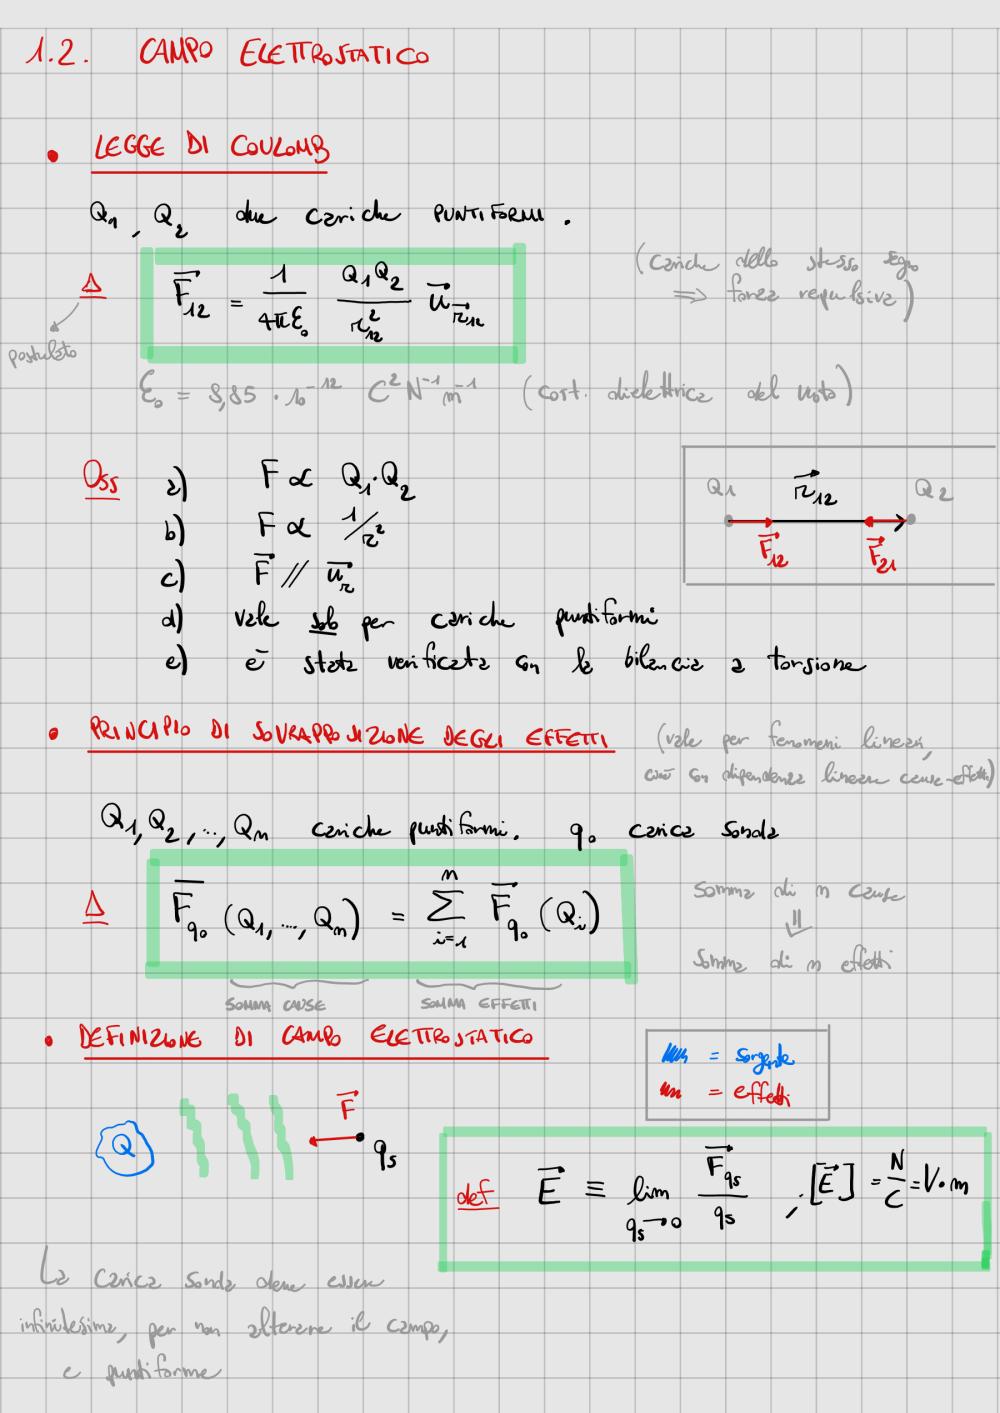 1.2. CAMPO ELETTROSTATICO
• LEGGE DI COULOMB
Q₁, Q₂ due cariche PUNTIFORMI.
(cariche dello stesso segno
⟹ forza repulsiva)
Δ F⃗₁₂ = 1/(4πε₀) Q₁Q₂/r₁₂² u⃗_r⃗₁₂
postulato
ε₀ = 8,85 · 10⁻¹² C² N⁻¹ m⁻¹ (cost. dielettrica del vuoto)
Oss a) F ∝ Q₁·Q₂
b) F ∝ 1/r²
c) F⃗ // u⃗_r
d) vale solo per cariche puntiformi
e) è stata verificata con la bilancia a torsione
Q1 r⃗₁₂ Q2
F⃗₁₂ F⃗₂₁
• PRINCIPIO DI SOVRAPPOSIZIONE DEGLI EFFETTI (vale per fenomeni lineari,
cioè con dipendenza lineare cause-effetti)
Q₁, Q₂, ..., Qn cariche puntiformi. q₀ carica sonda
Δ F⃗_q₀ (Q₁, ..., Qn) = ∑_{i=1}^{n} F⃗_q₀ (Qᵢ)
somma di n cause
⇓
somma di n effetti
SOMMA CAUSE SOMMA EFFETTI
• DEFINIZIONE DI CAMPO ELETTROSTATICO
= sorgente
= effetti
Q F⃗ qs
def E⃗ ≡ lim_{qs→0} F⃗_qs/qs , [E⃗] = N/C = V·m
La carica sonda deve essere
infinitesima, per non alterare il campo,
e puntiforme